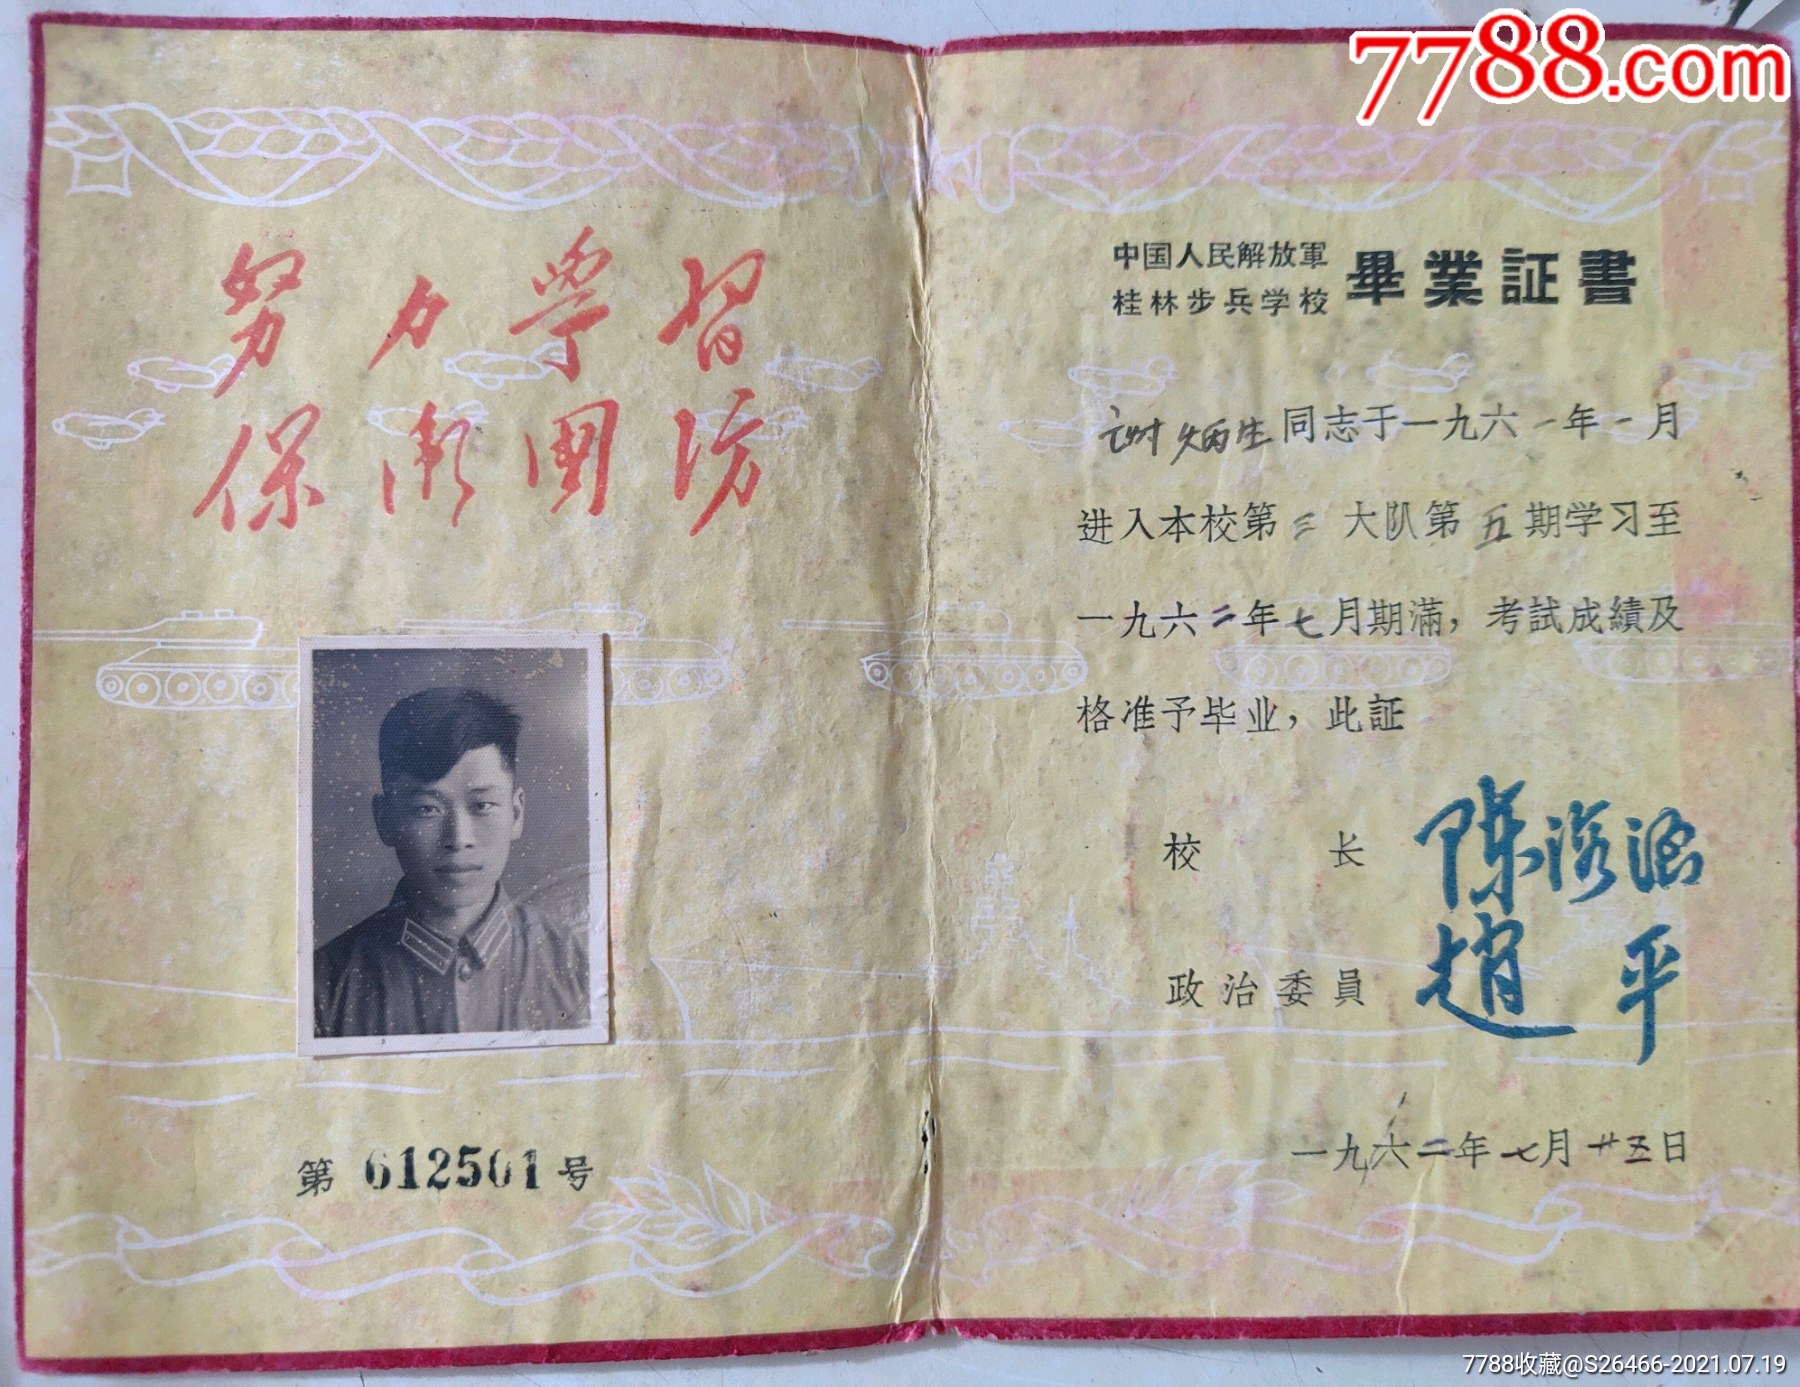 7788.com
努力学習
保衛國防
第 612501 号
中国人民解放軍
桂林步兵学校
畢業証書
谢炳生同志于一九六一年一月
进入本校第三大队第五期学习至
一九六二年七月期滿，考試成績及
格准予毕业，此証
校 长 陈海涵
政治委員 趙平
一九六二年七月廿五日
7788收藏@S26466-2021.07.19